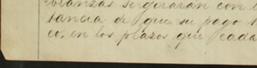 branzas se girarán con l
tancia de que su pago s
co. en los plazos que cada